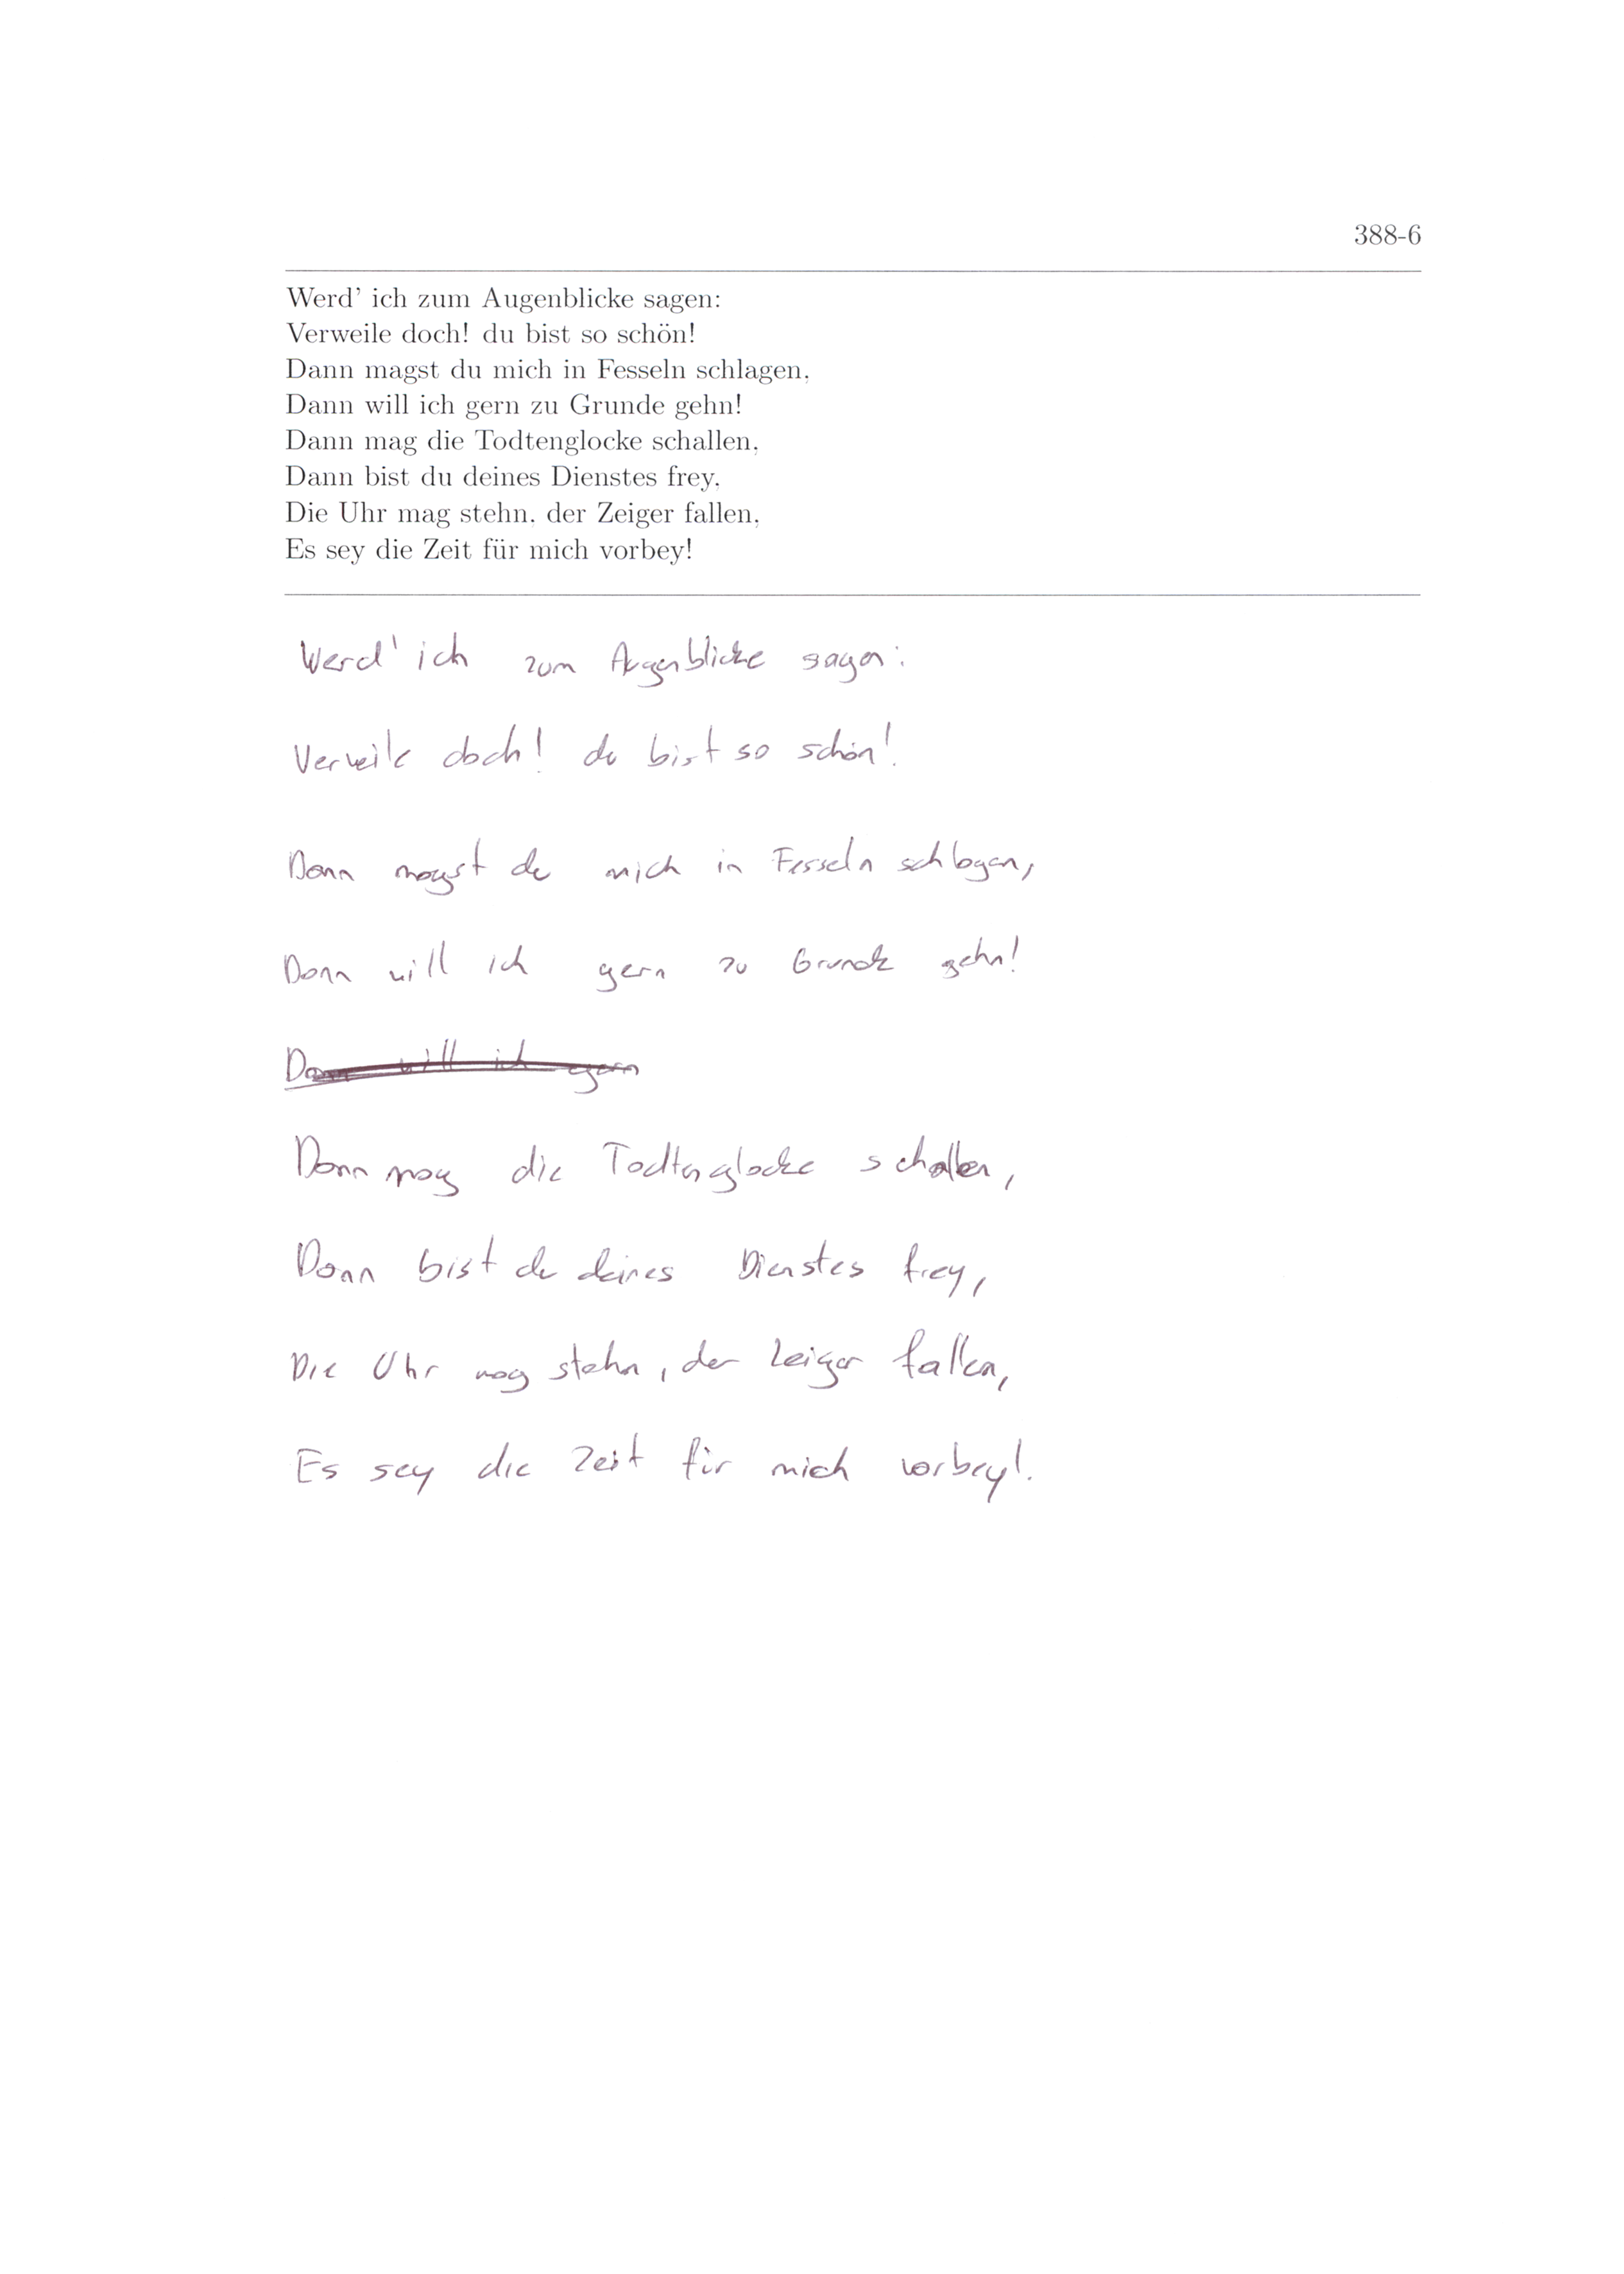 388-6
Werd' ich zum Augenblicke sagen:
Verweile doch! du bist so schön!
Dann magst du mich in Fesseln schlagen,
Dann will ich gern zu Grunde gehn!
Dann mag die Todtenglocke schallen,
Dann bist du deines Dienstes frey,
Die Uhr mag stehn, der Zeiger fallen,
Es sey die Zeit für mich vorbey!
Werd' ich zum Augenblicke sagen:
Verweile doch! du bist so schön!
Dann magst du mich in Fesseln schlagen,
Dann will ich gern zu Grunde gehn!
Dann will ich gern
Dann mag die Todtenglocke schallen,
Dann bist du deines Dienstes frey,
Die Uhr mag stehn, der Zeiger fallen,
Es sey die Zeit für mich vorbey!